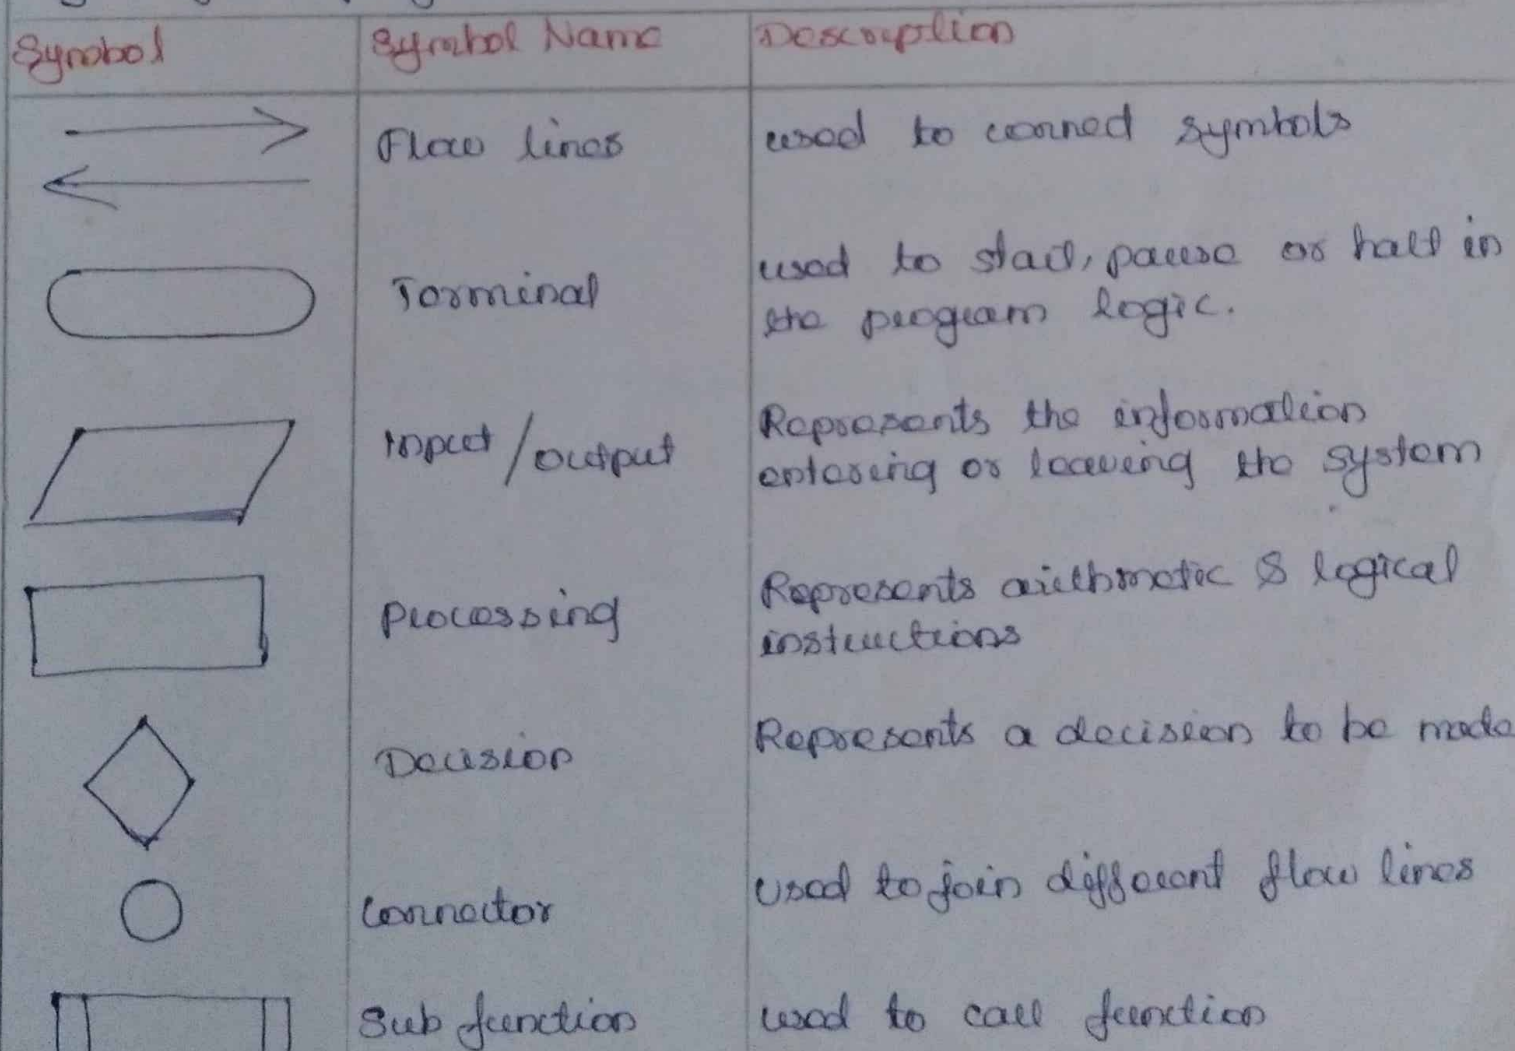 Symbol Symbol Name Description
Flow lines used to connect symbols
Terminal used to start, pause or halt in
the program logic.
Input/output Represents the information
entering or leaving the system
Processing Represents arithmetic & logical
instructions
Decision Represents a decision to be made
Connector Used to join different flow lines
Sub function used to call function